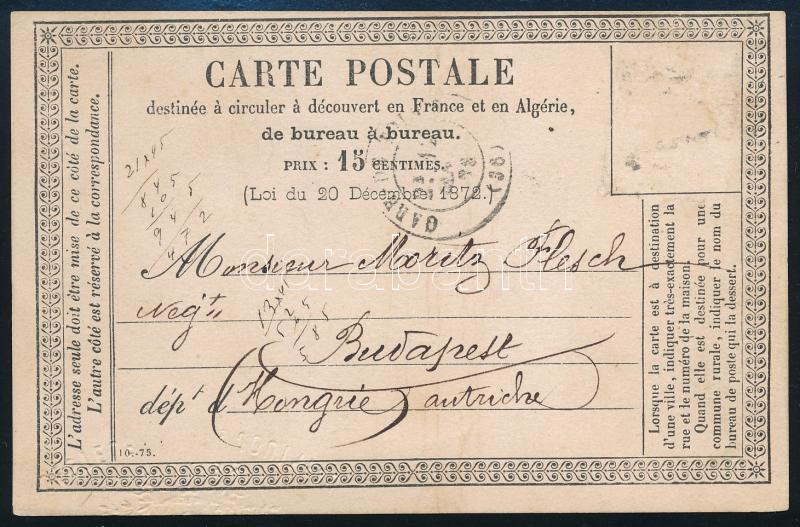 CARTE POSTALE
destinée à circuler à découvert en France et en Algérie,
de bureau à bureau.
PRIX : 15 CENTIMES.
(Loi du 20 Décembre 1872.)
Monsieur Moritz Flesch
Negt
Budapest
dépt d'Hongrie autriche
L'adresse seule doit être mise de ce côté de la carte.
L'autre côté est réservé à la correspondance.
Lorsque la carte est à destination
d'une ville, indiquer très-exactement la
rue et le numéro de la maison.
Quand elle est destinée pour une
commune rurale, indiquer le nom du
bureau de poste qui la dessert.
10.-75.
21x45
845
13x45
585
GARE
(36)
darabanth